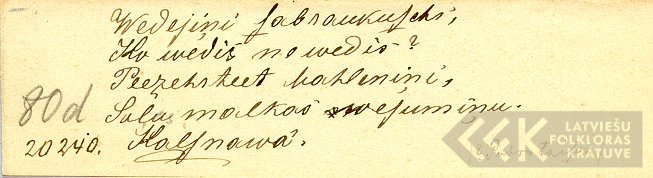 Wedejini sabraukuschi,
Ko wedis no wedis?
Peezehrteet bahlenini,
Salu malkas wesuminu.
80d
20240. Kalsnawâ.
LATVIEŠU
FOLKLORAS
KRĀTUVE